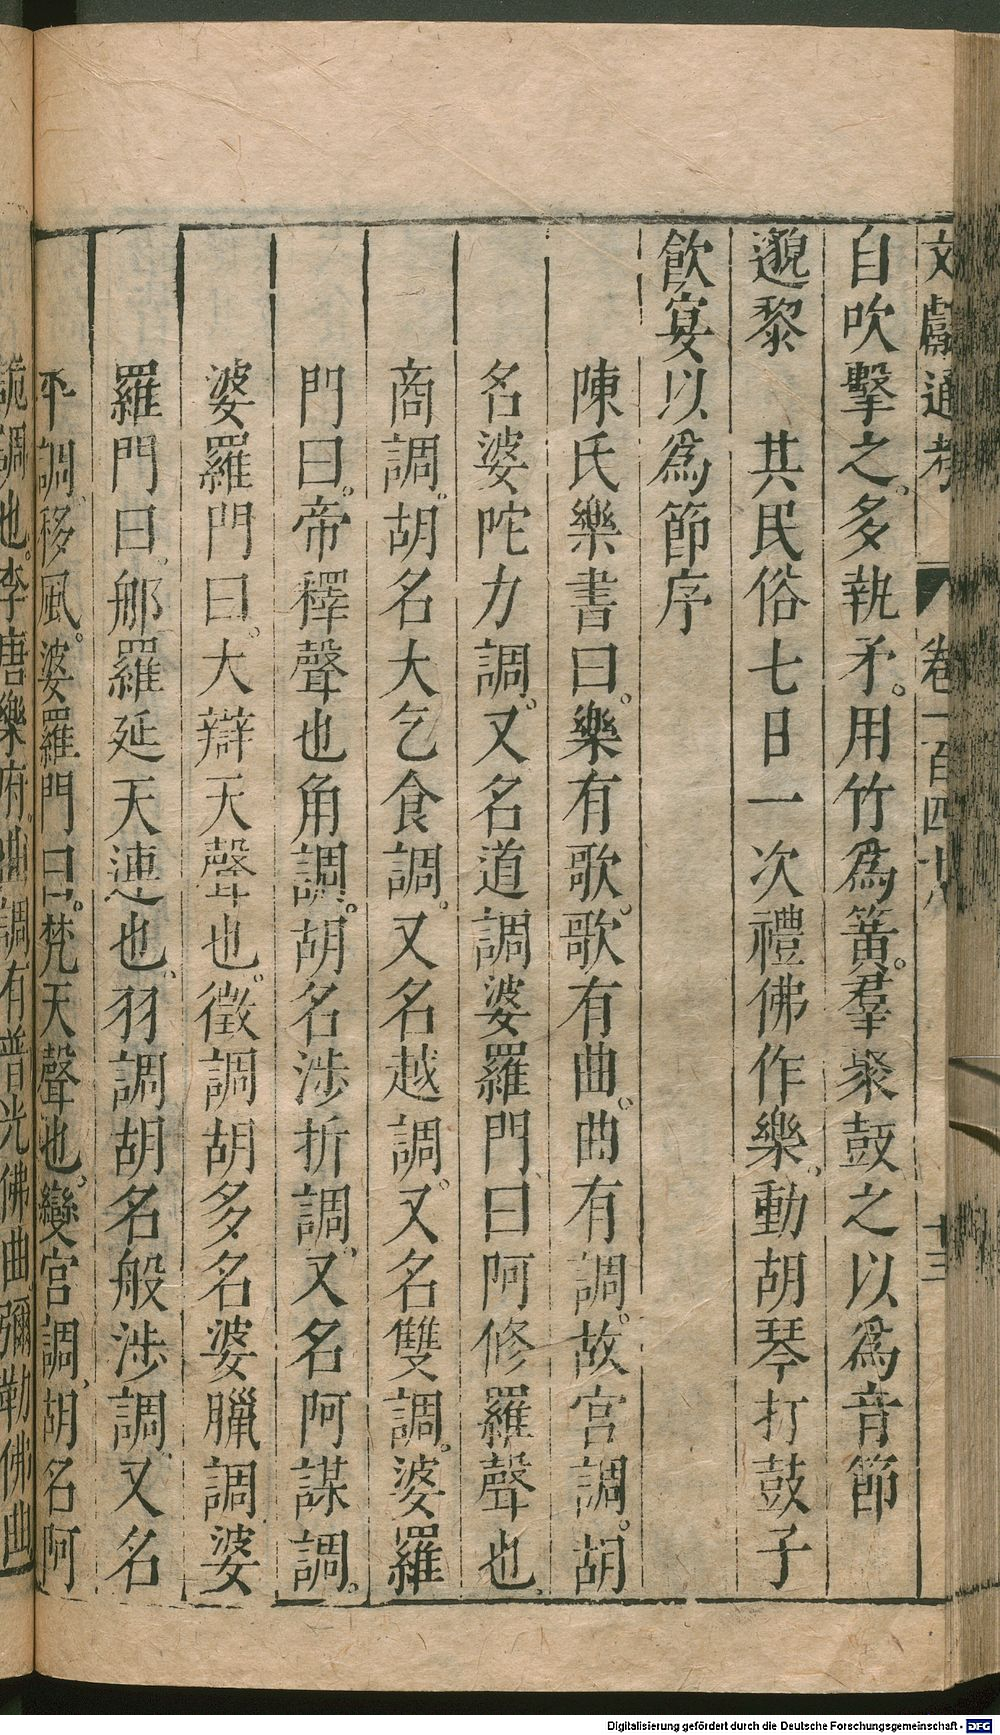 文獻通考 卷一百四十八 十三
自吹擊之。多執矛。用竹爲簧。羣聚鼓之以爲音節
邈黎 其民俗七日一次禮佛作樂。動胡琴打鼓子
飲宴以爲節序
陳氏樂書曰。樂有歌。歌有曲。曲有調。故宮調。胡
名婆陀力調。又名道調婆羅門曰阿修羅聲也。
商調。胡名大乞食調。又名越調。又名雙調。婆羅
門曰。帝釋聲也角調。胡名涉折調。又名阿謀調。
婆羅門曰。大辯天聲也。徵調胡名婆臘調婆
羅門曰。那羅延天連也。羽調胡名般涉調。又名
平調。移風。婆羅門曰。梵天聲也。變宮調。胡名阿
詭調也。李唐樂府。曲調有普光佛曲彌勒佛曲
Digitalisierung gefördert durch die Deutsche Forschungsgemeinschaft - DFG